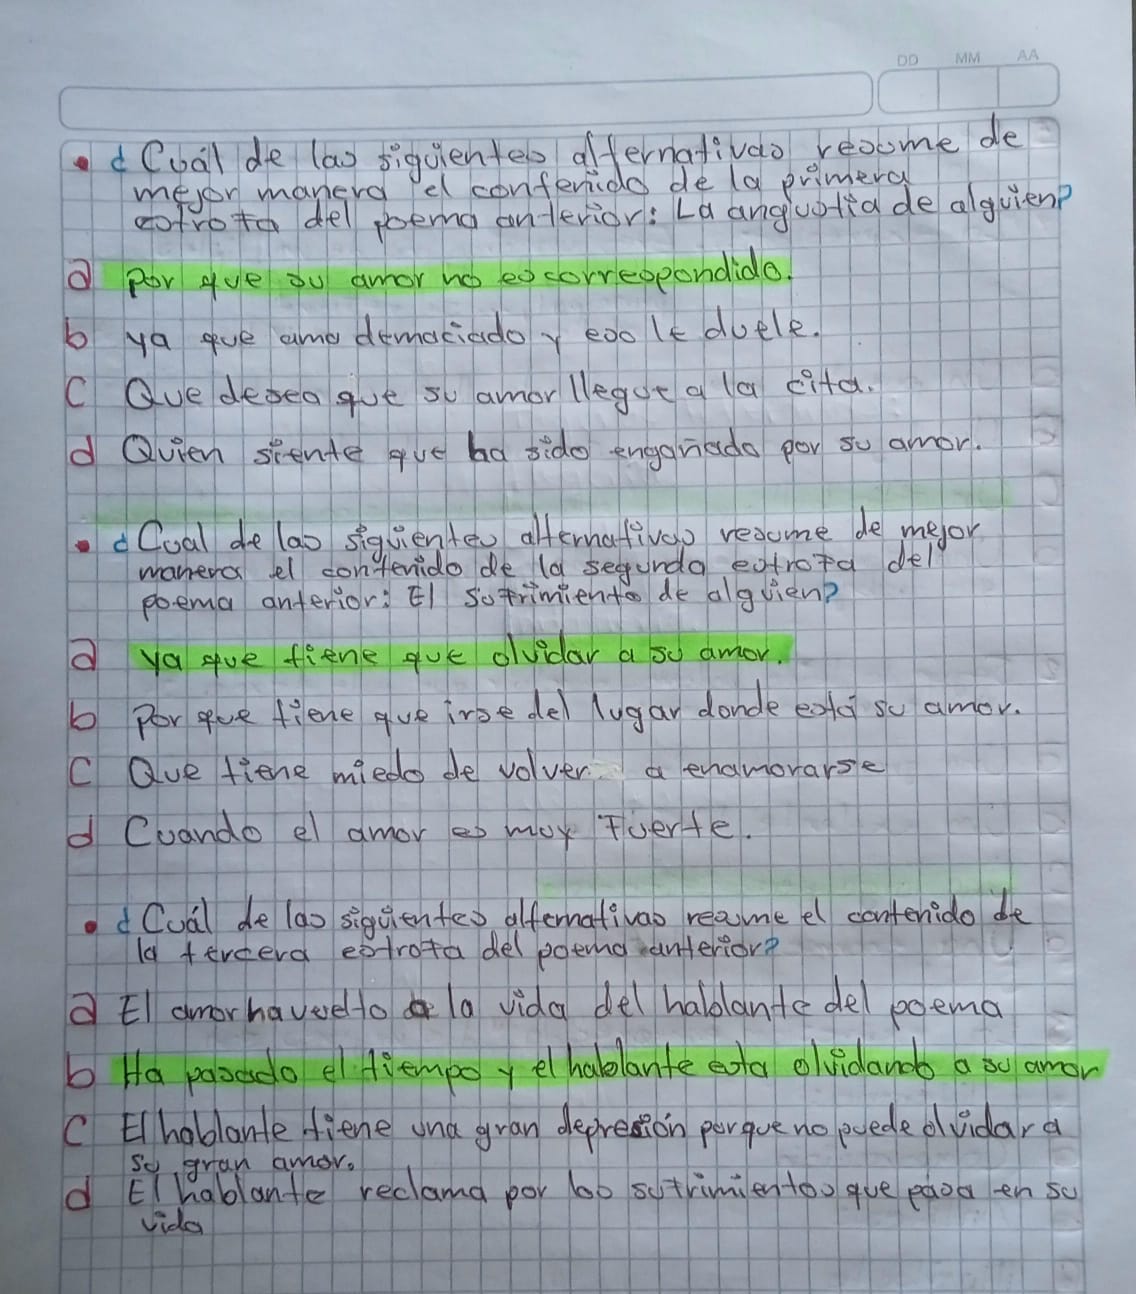 DD MM AA
• ¿Cuál de las siguientes alternativas resume de
mejor manera el contenido de la primera
estrofa del poema anterior: La angustia de alguien?
a Por que su amor no es correspondido.
b ya que ama demaciado y eso le duele.
C Que desea que su amor llegue a la cita.
d Quien siente que ha sido engañado por su amor.
• ¿Cual de las siguientes alternativas resume de mejor
manera el contenido de la segunda estrofa del
poema anterior: El sufrimiento de alguien?
a ya que tiene que olvidar a su amor.
b Por que tiene que irse del lugar donde está su amor.
C Que tiene miedo de volver a enamorarse
d Cuando el amor es muy fuerte.
• ¿Cuál de las siguientes alternativas resume el contenido de
la tercera estrofa del poema anterior?
a El amor ha vuelto a la vida del hablante del poema
b Ha pasado el tiempo y el hablante esta olvidando a su amor
C El hablante tiene una gran depresión porque no puede olvidar a
su gran amor.
d El hablante reclama por los sufrimientos que pasa en su
vida